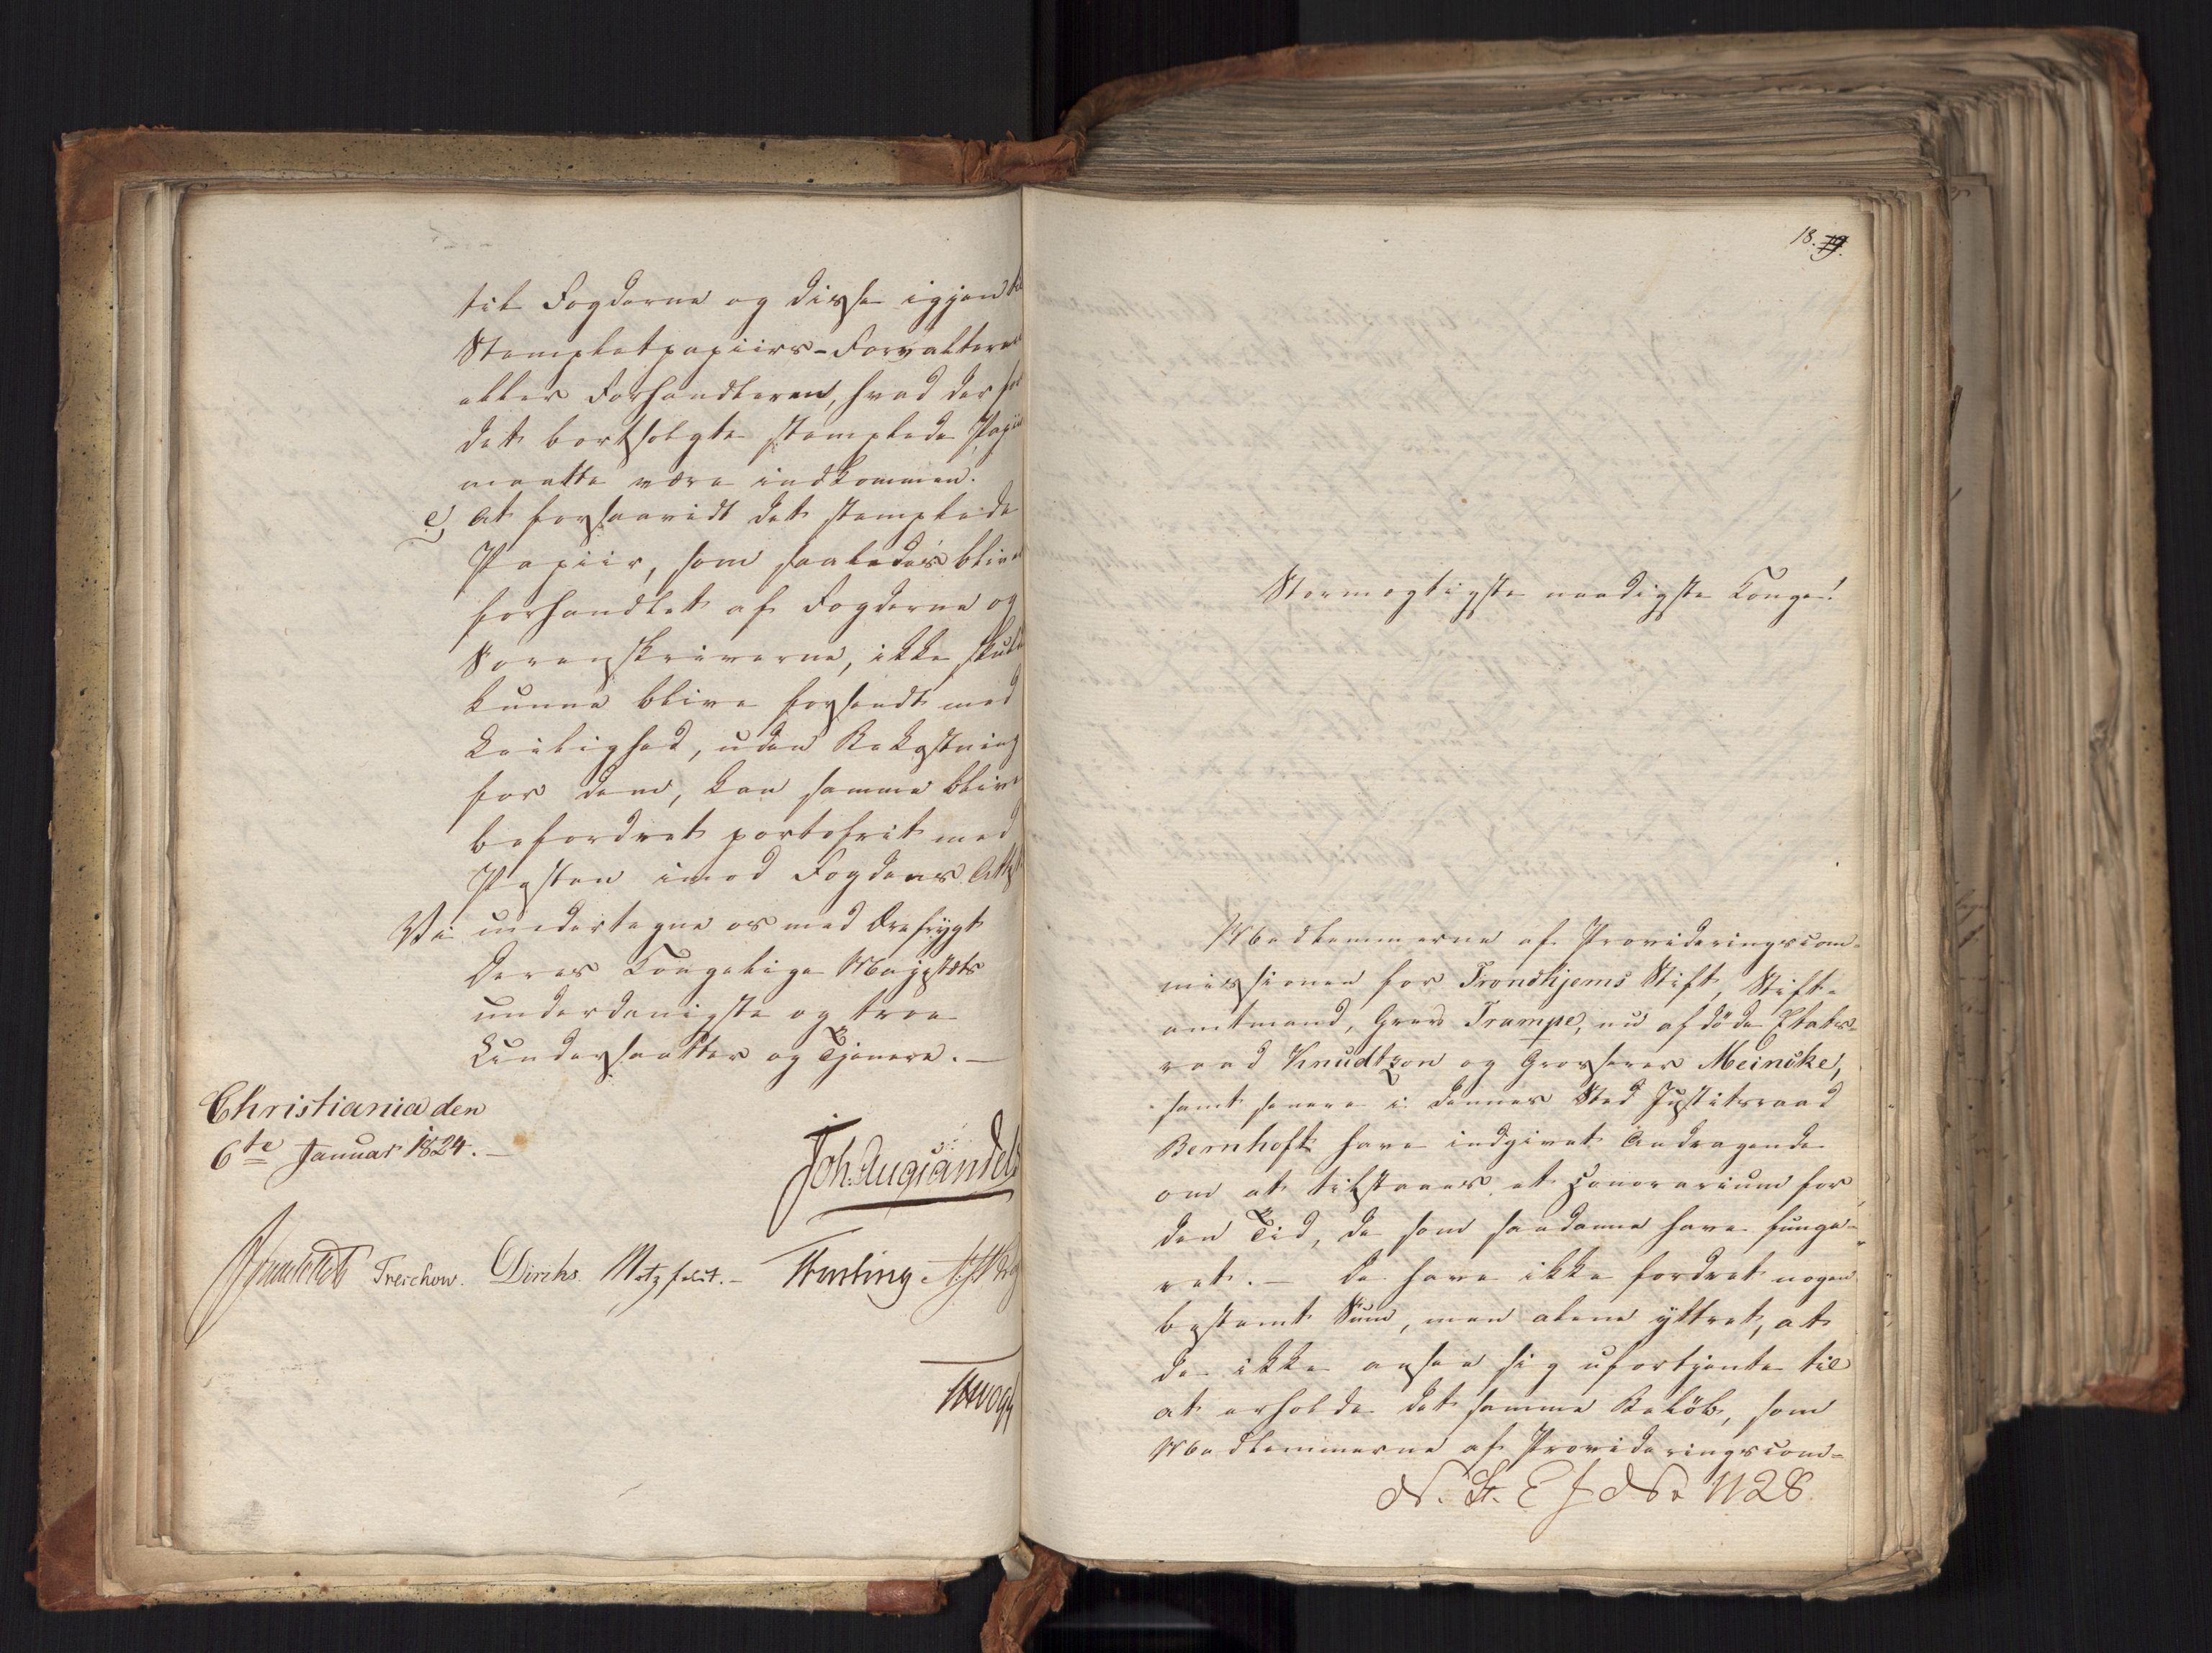 til Fogderne og disse igjen til
Stempletpapiirs-Forvalteren
eller Forhandleren, hvad der for
det bortsolgte stemplede Papiir
maatte være indkommen.
e, At forsaavidt det stemplede
Papiir, som saaledes bliver
forhandlet af Fogderne og
Sorenskriverne, ikke skulde
kunne blive forsendt med
Leilighed, uden Bekostning
for dem, kan samme blive
befordret portofrit med
Posten imod Fogdens Attest
Vi undertegne os med Ærefrygt
Deres Kongelige Majestæts
underdanigste og troe
Undersaatter og Tjenere. —
Christiania den
6te Januar 1824. —
Joh. Aug Sandels
Sommerfeldt Treschow. Diriks. Motzfeldt. —
18. 19.
Stormægtigste naadigste Konge!
Medlemmerne af Provideringscom-
missionen for Trondhjems Stift, Stift-
amtmand, Grev Trampe, nu afdöde Etats-
raad Knudtzon og Grosserer Meincke,
samt senere i dennes Sted Justitsraad
Bernhoft have indgivet Andragende
om at tilstaaes et Honorarium for
den Tid, de som saadanne have funge-
ret. — De have ikke fordret nogen
bestemt Sum, men alene yttret, at
de ikke ansee sig ufortjente til
at erholde det samme Belöb, som
Medlemmerne af Provideringscom-
N. St. E f No 1128.